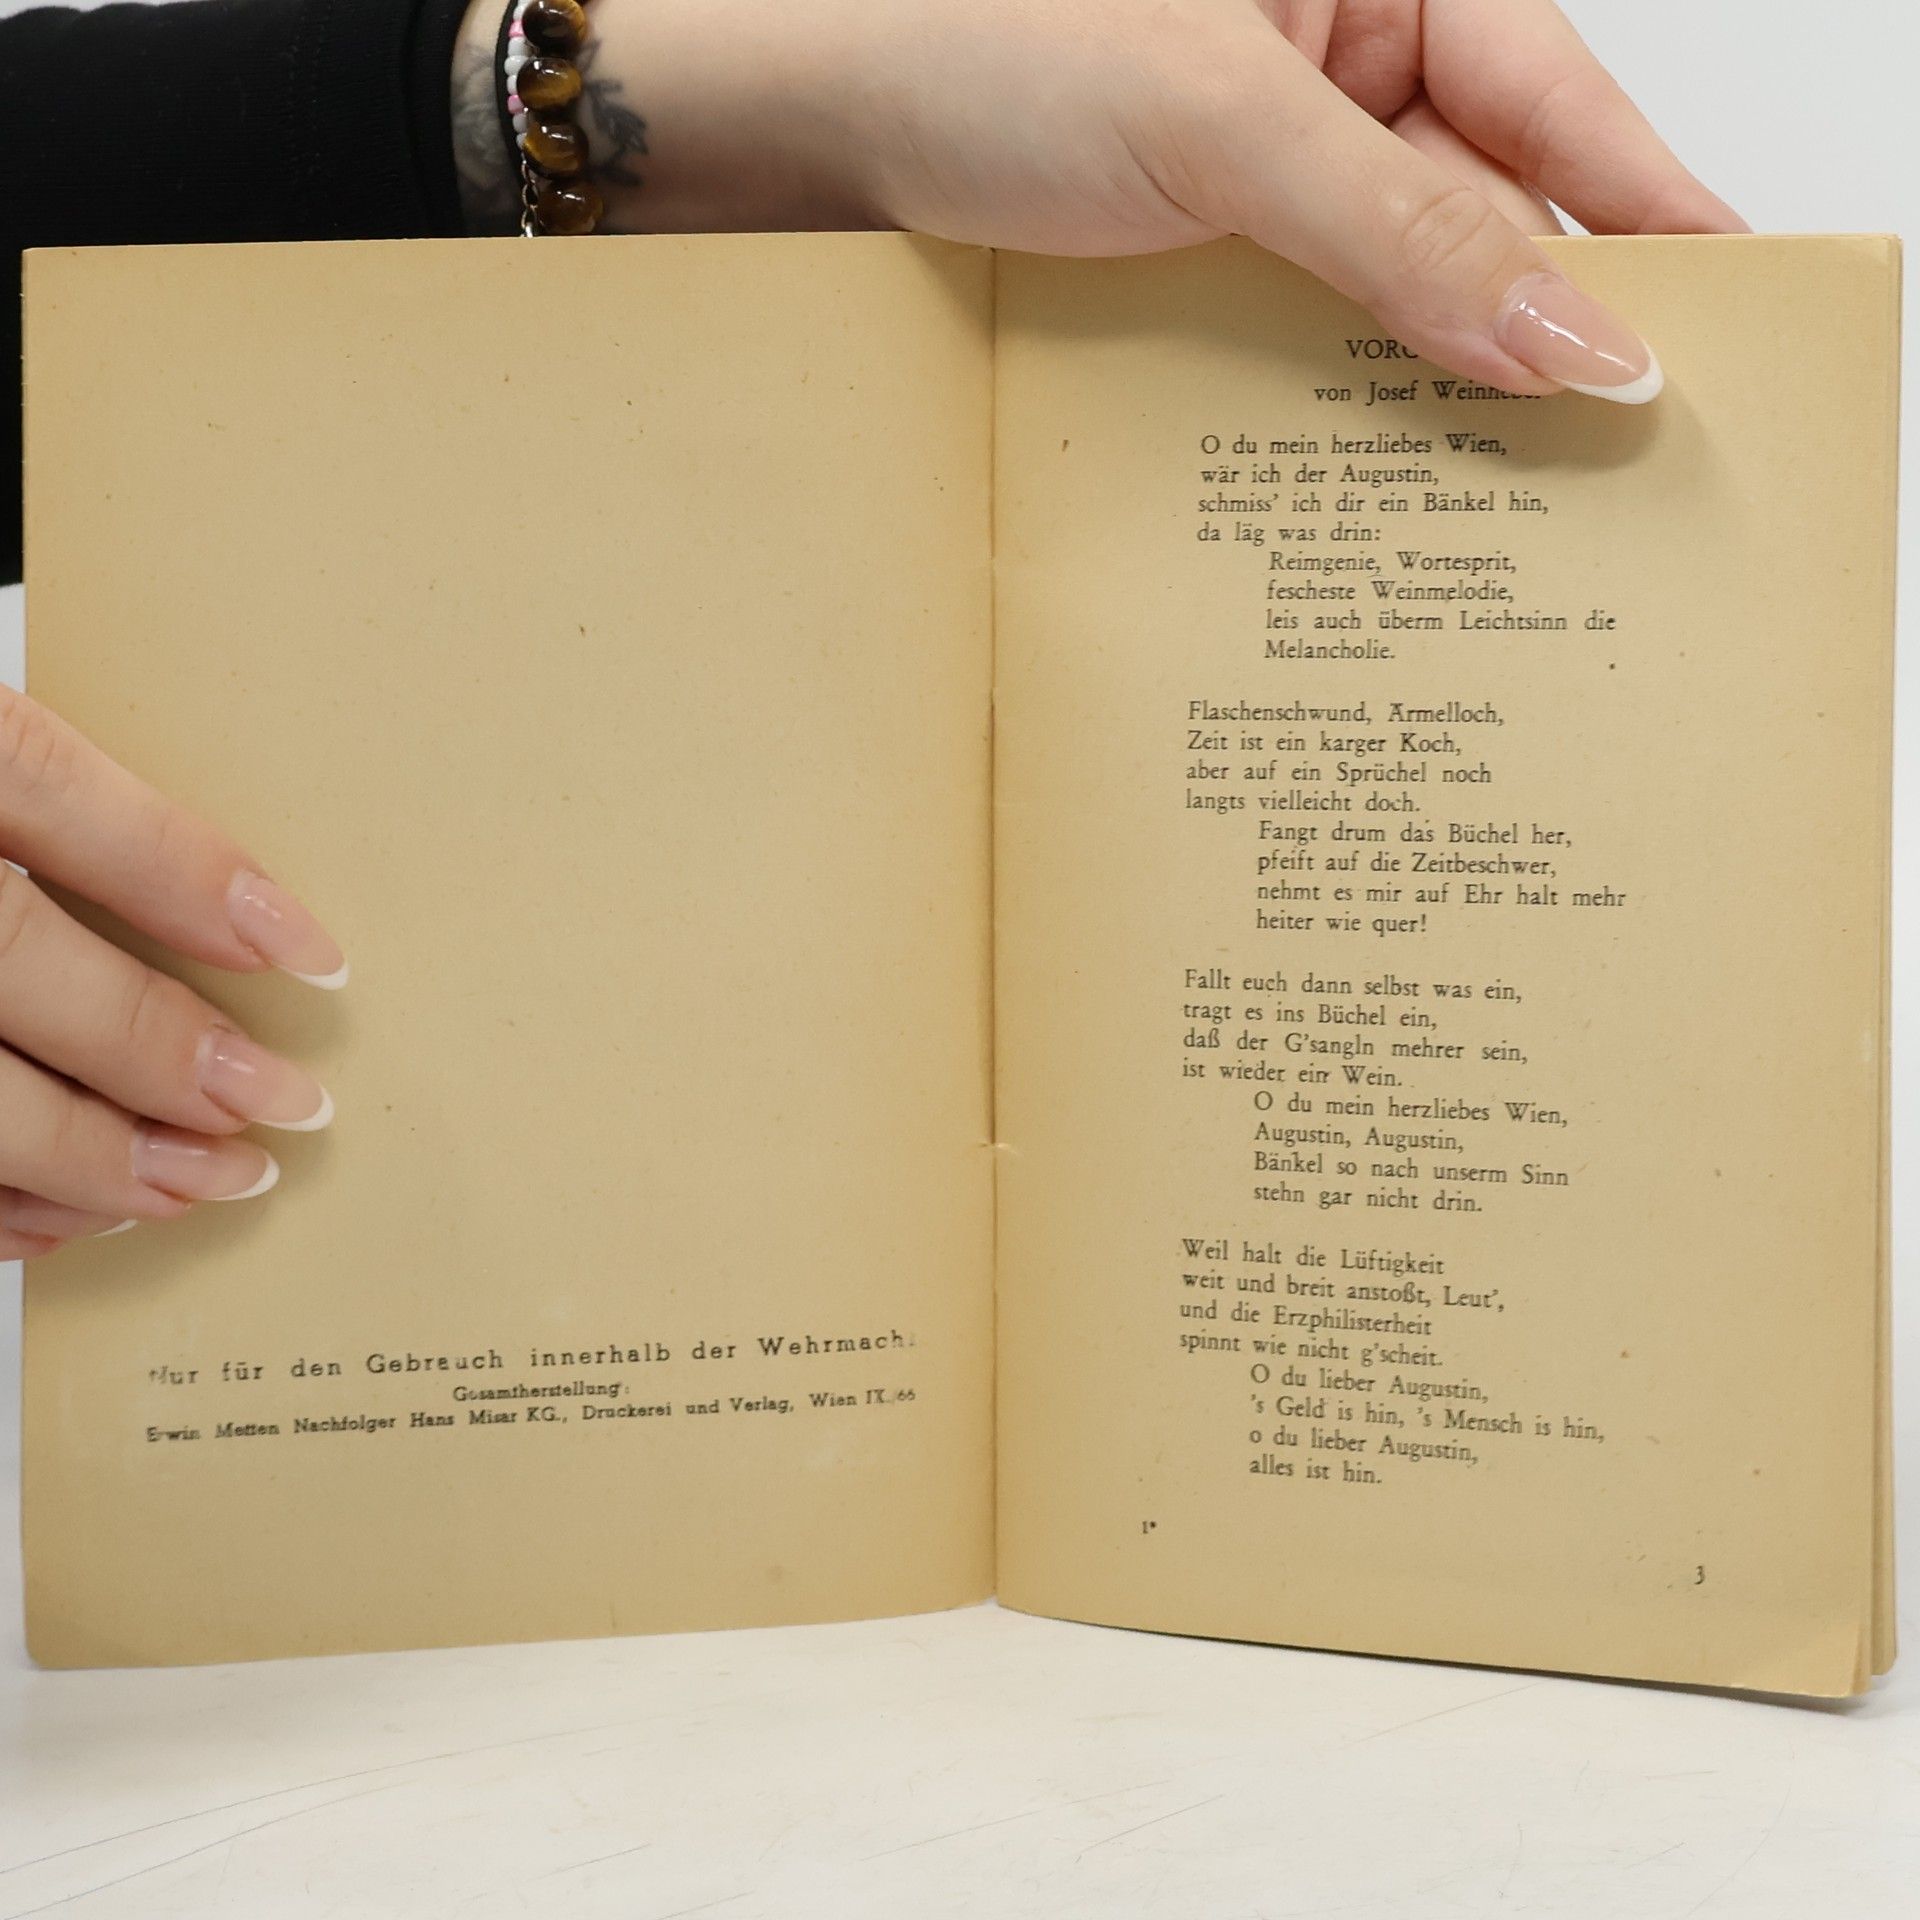 Nur für den Gebrauch innerhalb der Wehrmach
Gesamtherstellung:
Erwin Metten Nachfolger Hans Misar KG., Druckerei und Verlag, Wien IX./66
von Josef
O du mein herzliebes Wien,
wär ich der Augustin,
schmiss' ich dir ein Bänkel hin,
da läg was drin:
Reimgenie, Wortesprit,
fescheste Weinmelodie,
leis auch überm Leichtsinn die
Melancholie.
Flaschenschwund, Ärmelloch,
Zeit ist ein karger Koch,
aber auf ein Sprüchel noch
langts vielleicht doch.
Fangt drum das Büchel her,
pfeift auf die Zeitbeschwer,
nehmt es mir auf Ehr halt mehr
heiter wie quer!
Fallt euch dann selbst was ein,
tragt es ins Büchel ein,
daß der G'sangln mehrer sein,
ist wieder ein Wein.
O du mein herzliebes Wien,
Augustin, Augustin,
Bänkel so nach unserm Sinn
stehn gar nicht drin.
Weil halt die Lüftigkeit
weit und breit anstoßt, Leut',
und die Erzphilisterheit
spinnt wie nicht g'scheit.
O du lieber Augustin,
's Geld is hin, 's Mensch is hin,
o du lieber Augustin,
alles ist hin.
1*
3